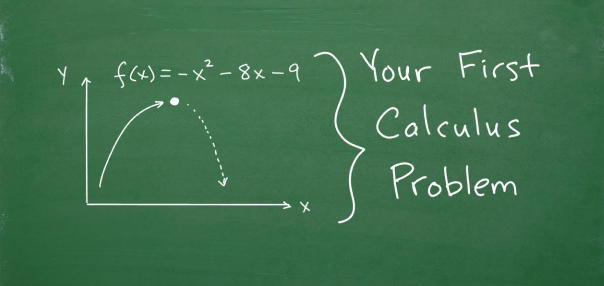 Y f(x) = -x² - 8x - 9
x
Your First
Calculus
Problem